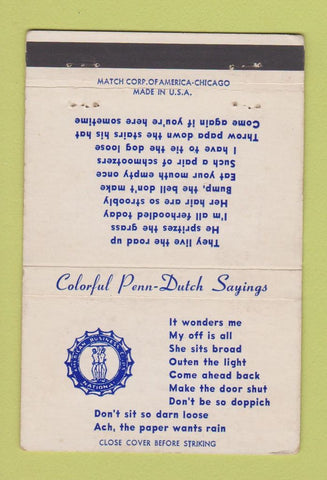 MATCH CORP. OF AMERICA-CHICAGO
MADE IN U.S.A.
They live the road up
He spritzes the grass
I'm all ferhoodled today
Her hair are so strobly
Bump, the bell don't make
Eat your mouth empty once
Such a pair of schmootzers
I have to tie the dog loose
Throw papa down the stairs his hat
Come again if you're here sometime
Colorful Penn-Dutch Sayings
It wonders me
My off is all
She sits broad
Outen the light
Come ahead back
Make the door shut
Don't be so doppich
Don't sit so darn loose
Ach, the paper wants rain
AMERICAN BUSINESS CLUB
NATIONAL
CLOSE COVER BEFORE STRIKING